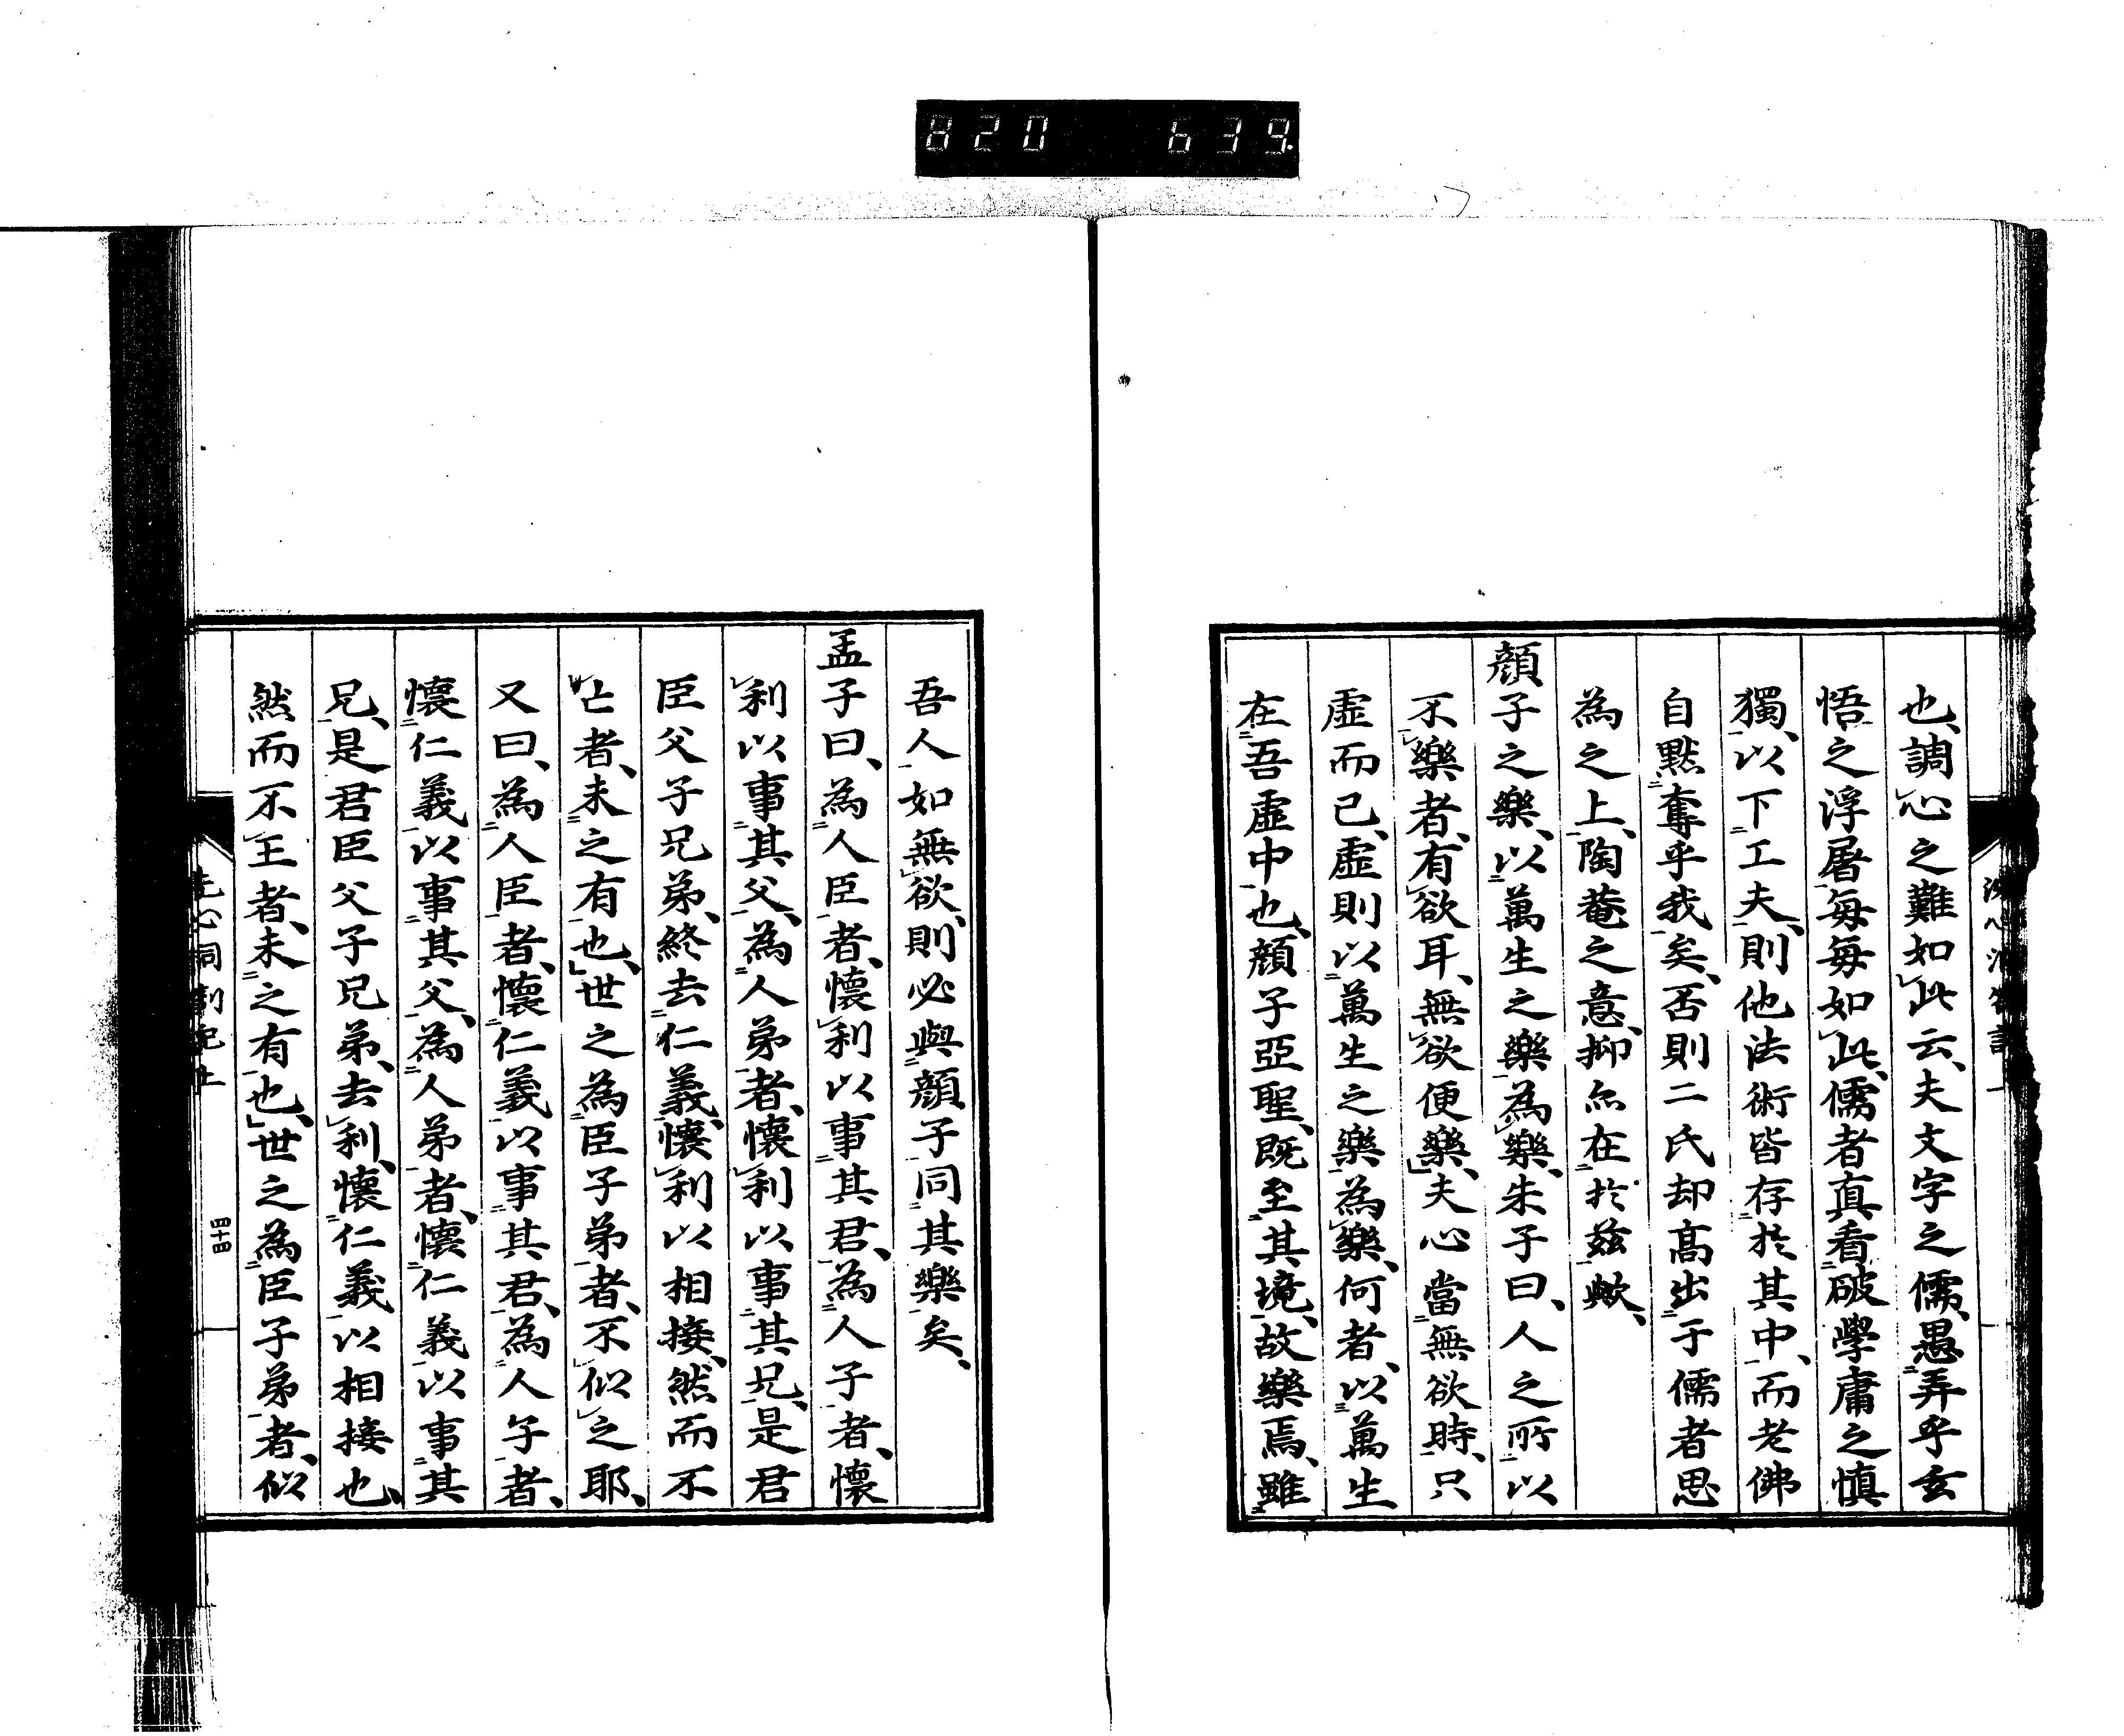 820 639.
也、調心之難如此云、夫文字之儒、愚弄乎玄
悟之浮屠毎毎如此、儒者真看破學庸之慎
獨、以下工夫、則他法術皆存於其中、而老佛
自黙奪乎我矣、否則二氏却高出于儒者思
為之上、陶菴之意、抑亦在於茲歟、
顔子之樂、以萬生之樂為樂、朱子曰、人之所以
不樂者、有欲耳、無欲便樂、夫心當無欲時、只
虛而已、虛則以萬生之樂為樂、何者、以萬生
在吾虛中也、顔子亞聖、既至其境、故樂焉、雖
吾人如無欲、則必與顔子同其樂矣、
孟子曰、為人臣者、懷利以事其君、為人子者、懷
利以事其父、為人弟者、懷利以事其兄、是君
臣父子兄弟、終去仁義、懷利以相接、然而不
亡者、未之有也、世之為臣子弟者、不似之耶、
又曰、為人臣者、懷仁義以事其君、為人子者、
懷仁義以事其父、為人弟者、懷仁義以事其
兄、是君臣父子兄弟、去利、懷仁義以相接也、
然而不王者、未之有也、世之為臣子弟者、似
心洞劄記上
四十四